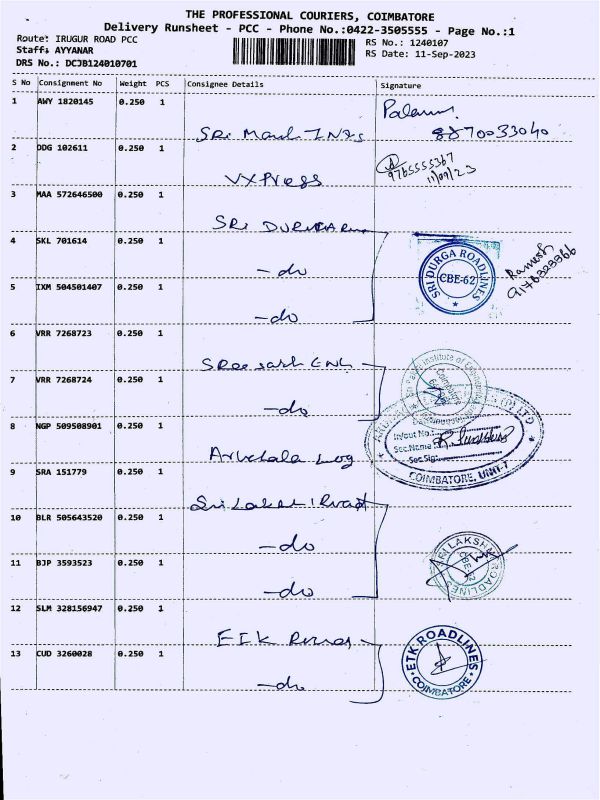 THE PROFESSIONAL COURIERS, COIMBATORE
Delivery Runsheet - PCC - Phone No.:0422-3505555 - Page No.:1
Route: IRUGUR ROAD PCC
Staff: AYYANAR
DRS No.: DCJB124010701
RS No.: 1240107
RS Date: 11-Sep-2023
S No Consignment No Weight PCS Consignee Details Signature
1 AWY 1820145 0.250 1
8870033040
2 DDG 102611 0.250 1 VXPress
9765555367
11/09/23
3 MAA 572646500 0.250 1 SRI
4 SKL 701614 0.250 1 -do
SRI DURGA ROADLINES
CBE-62
Ramesh
5 IXM 504501407 0.250 1 -do
6 VRR 7268723 0.250 1
7 VRR 7268724 0.250 1 -do
Coimbatore
8 NGP 509508901 0.250 1 Log
In/out No.:
Sec.Name
Sec.Sig:
COIMBATORE. UNIT-7
9 SRA 151779 0.250 1 Sri
10 BLR 505643520 0.250 1 -do
11 BJP 3593523 0.250 1 -do
SRI LAKSHMI ROADLINES
CBE-62
12 SLM 328156947 0.250 1
13 CUD 3260028 0.250 1 -do
ETK ROADLINES
COIMBATORE